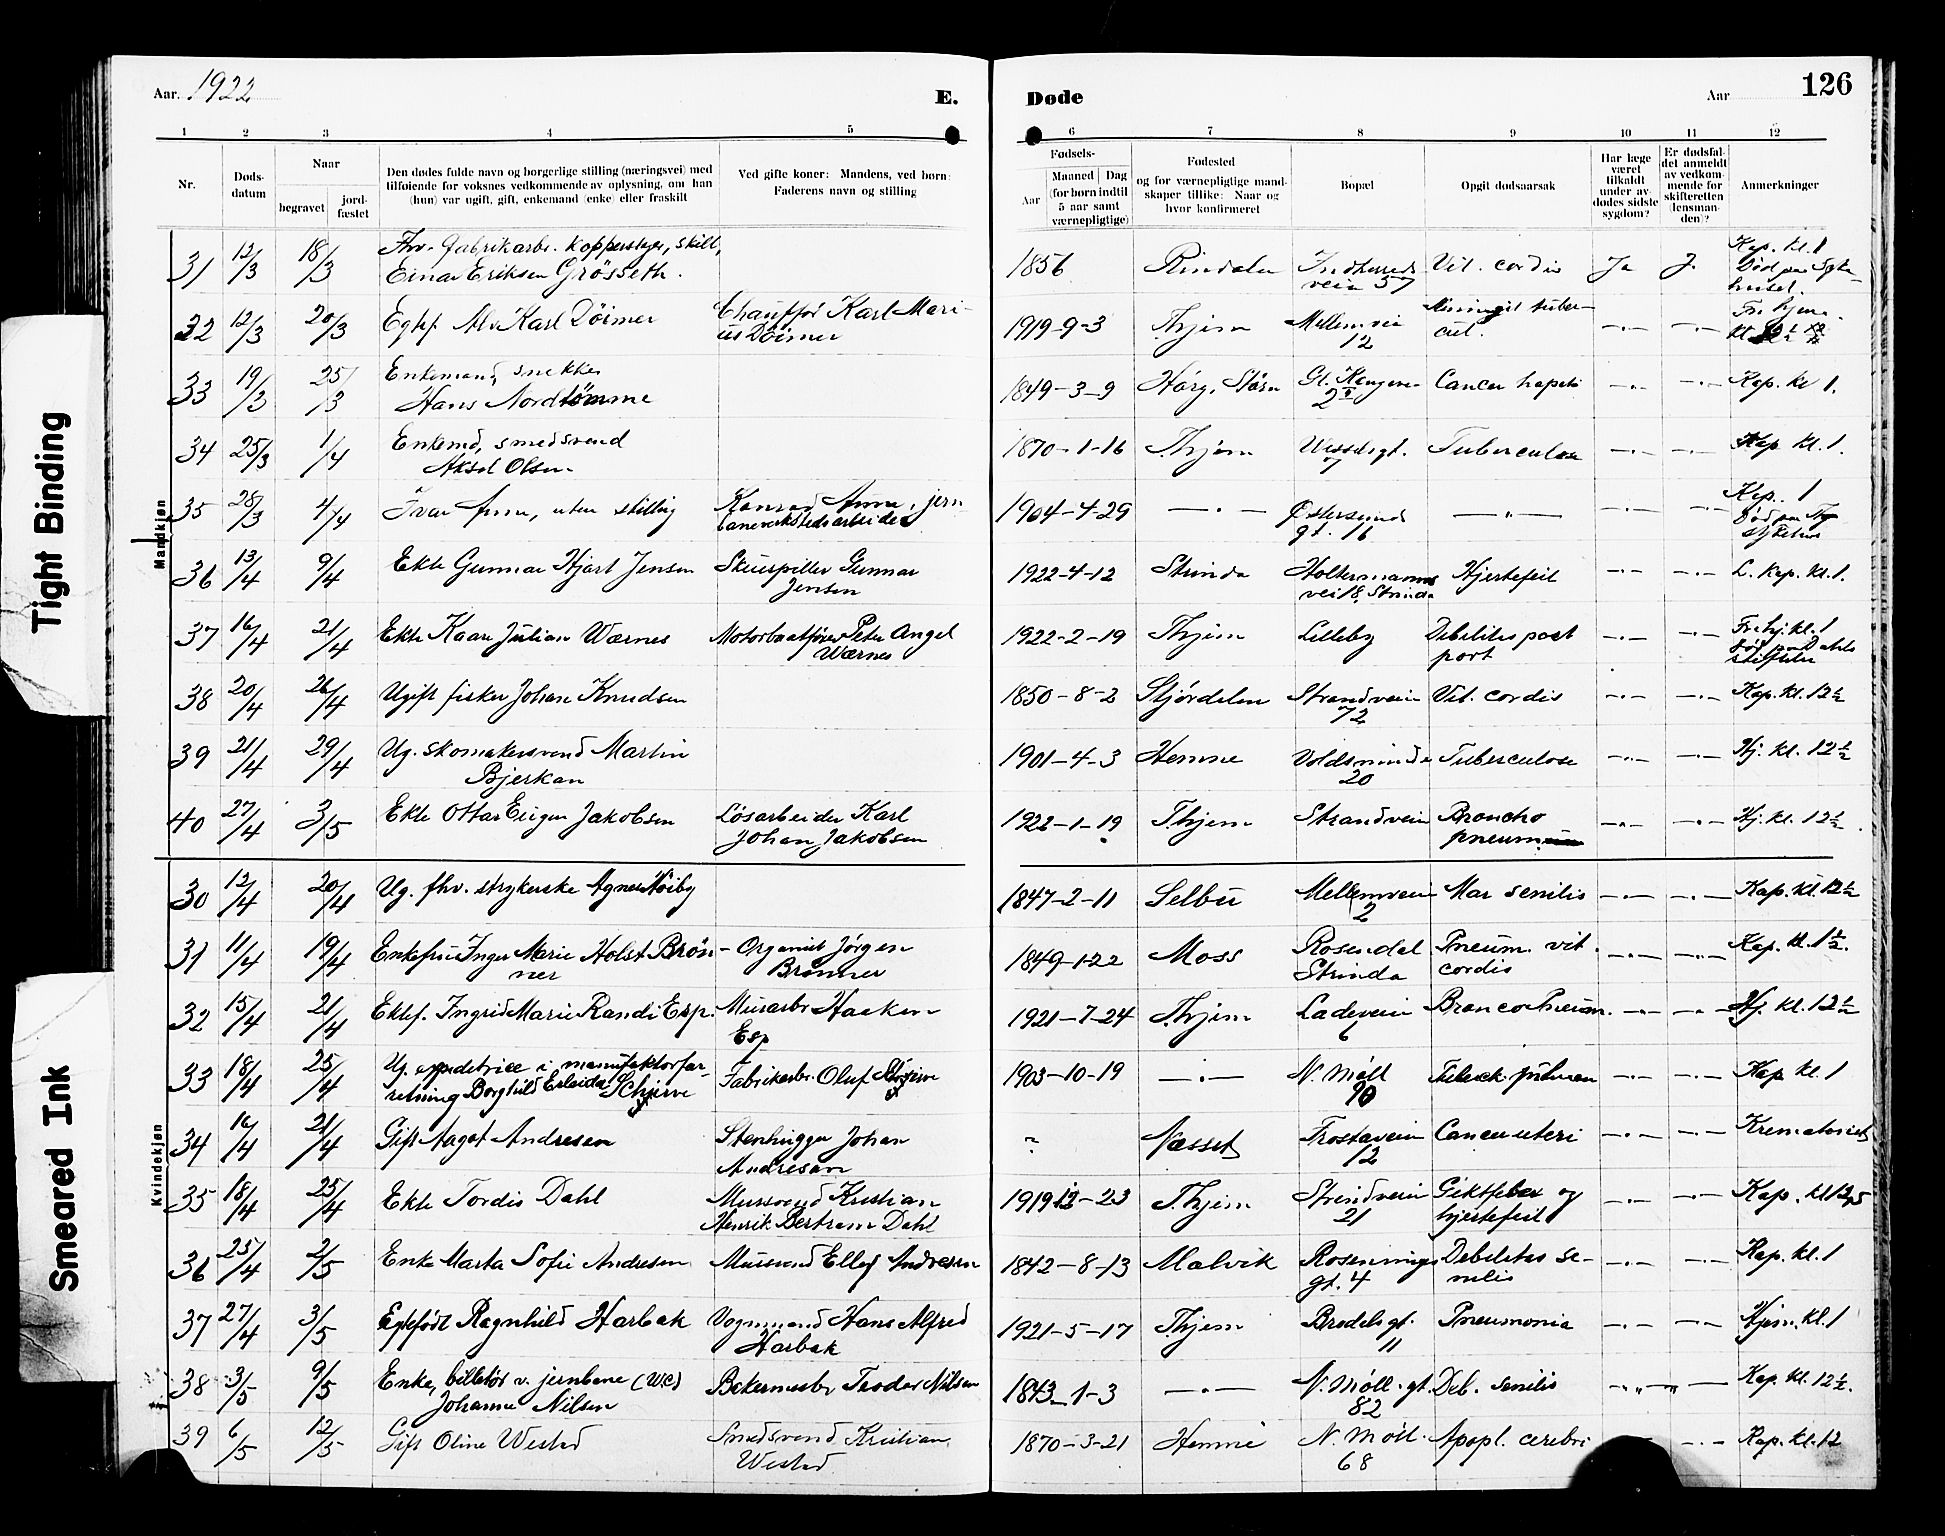 Tight Binding
Smeared Ink
Aar. 1922
E.
Døde
Aar
126
1 2 3 4 5 6 7 8 9 10 11 12
Nr.
Døds-
datum
Naar
begravet
jord-
fæstet
Den dødes fulde navn og borgerlige stilling (næringsvei) med
tilføiende for voksnes vedkommende av oplysning, om han
(hun) var ugift, gift, enkemand (enke) eller fraskilt
Ved gifte koner: Mandens, ved børn:
Faderens navn og stilling
Fødsels-
Aar
Maaned Dag
(for børn indtil
5 aar samt
værnepligtige)
Fødested
og for værnepligtige mand-
skaper tillike: Naar og
hvor konfirmeret
Bopæl
Opgit dødsaarsak
Har læge
været
tilkaldt
under av-
dødes sidste
sygdom?
Er dødsfal-
det anmeldt
av vedkom-
mende for
skifteretten
(lensman-
den)?
Anmerkninger
Mandkjøn
31 12/3 18/3 Fhv. fabrikarb. kopperslager, skilt,
Einar Eriksen Grösseth. 1856 Rindalen Indherreds
veien 57 Vit. cordis Ja J. Kap. kl. 1
Död paa Syke-
huset.
32 12/3 20/3 Egtef. Alv Karl Döimer Chaufför Karl Mari-
us Döimer 1919-9-3 Thjem Mellemvei
12 Meningit tuber-
cul. -„- -„- Fr. hjem.
33 19/3 25/3 Enkemand, snekker
Hans Nordtömme 1849-3-9 Hörg, Stören Cancer hepatis -„- -„- Kap. kl 1.
34 25/3 1/4 Enkemd, smedsvend
Aksel Olsen 1870-1-16 Thjem Wesselsgt.
7 Tuberculose -„- -„- Kap kl. 1.
35 28/3 4/4 Ivar Aune, uten stilling Konrad Aune, jern
baneverkstedsarbeider 1904-4-29 -„- Östersunds
gt. 16 -„- -„- -„- Kap. 1
död paa
sykehus
36 13/4 9/4 Ekte Gunnar Hjart Jensen Skuespiller Gunnar
Jensen 1922-4-12 Strinda Holtermanns
vei 18, Strinda Hjertefeil -„- -„- L. kap. kl. 1.
37 16/4 21/4 Ekte Kaare Julian Wærnes Motorbaatförer Peter Angel
Wærnes 1922-2-19 Thjem Lilleby Debilitas post
part -„- -„- Fr. hj. kl. 1
död paa Dahls
stiftelse
38 20/4 26/4 Ugift fisker Johan Knudsen 1850-8-2 Stjördalen Strandveien
72 Vit. cordis -„- -„- Kap. kl. 12½
39 21/4 29/4 Ug. skomakersvend Martin
Bjerkan 1901-4-3 Hemne Voldsminde
20 Tuberculose -„- -„- Hj. kl. 12½
40 27/4 3/5 Ekte Ottar Eugen Jakobsen Lösarbeider Karl
Johan Jakobsen 1922-1-19 T.hjem Strandveien Broncho
pneum -„- -„- Hj. kl. 12½
Kvindekjøn
30 12/4 20/4 Ug. fhv. strykerske Agnes Höiby 1847-2-11 Selbu Mellemveien
2 Mar senilis -„- -„- Kap. kl. 12½
31 11/4 19/4 Enkefrue Inger Marie Holst Brön-
ner Organist Jörgen
Brönner 1849-1-22 Moss Rosendal
Strinda Pneum. vit.
cordis -„- -„- Kap. kl. 1½.
32 15/4 21/4 Ektef. Ingrid Marie Randi Esp. Murarbr Haakon
Esp 1921-7-24 T.hjem Ladeveien
6 Broncopneum. -„- -„- Hj. kl. 12½
33 18/4 25/4 Ug. expeditrice i manufakturfor-
retning Borghild Erleida Schjerve Fabrikarbr. Oluf 1903-10-19 -„- N. Möll
90 Tuberk. pulmon -„- -„- Kap kl. 1
34 16/4 21/4 Gift Aagot Andresen Stenhugger Johan
Andresen ? Næsset Frostaveien
12 Cancer uteri -„- -„- Krematoriet
35 18/4 25/4 Ekte Tordis Dahl Mursvend Kristian
Henrik Bertram Dahl 1919-12-23 T.hjem Strindveien
21 Giktfeber og
hjertefeil -„- -„- Kap. kl 12,5
36 25/4 2/5 Enke Marta Sofie Andresen Mursvend Ellef Andresen 1842-8-13 Malvik Rosenborgs
gt. 4 Debilitas se-
nilis -„- -„- Kap. kl. 1
37 27/4 3/5 Egtefödt Ragnhild Harbak Vognmand Hans Alfred
Harbak 1921-5-17 T.hjem Brodalsgt.
11 Pneumonia -„- -„- Hjem. kl. 1
38 3/5 9/5 Enke, billetör v. jernbane (W.C)
Johanne Nilsen Bakermester Teodor Nilsen 1843-1-3 -„- N. Möll. gt.
82 Deb. senilis -„- -„- Kap. kl. 12½.
39 6/5 12/5 Gift Oline Westad Smedsvend Kristian
Westad 1870-3-21 Hemne N. Möll.
68 Apopl. cerebri -„- Kap. kl. 12